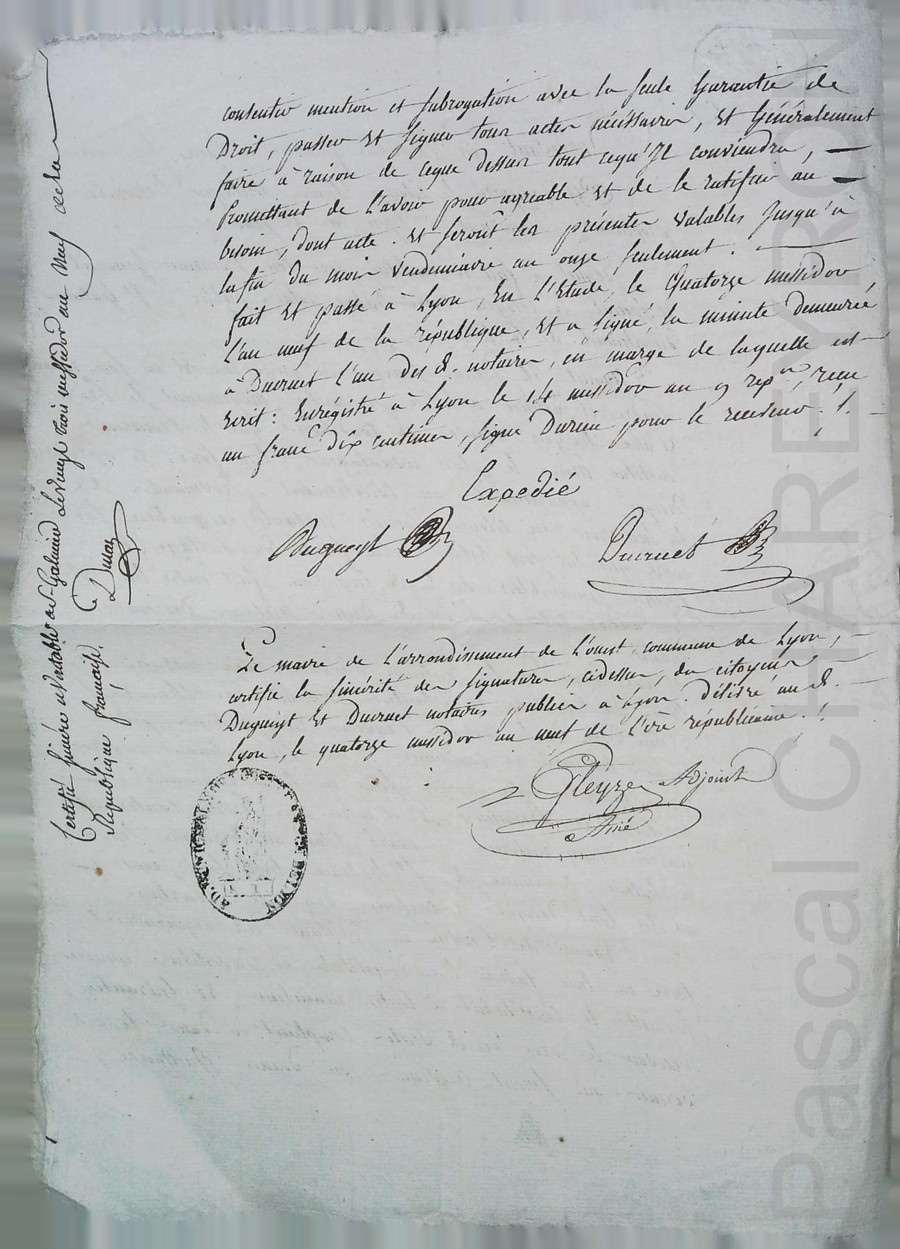 consentir mention et subrogation avec la seule Garantie de
Droit, passer Et signer tous actes nécéssaires, Et Généralement
faire à raison de ceque dessus tout cequ'Il conviendra,
Promettant de L'avoir pour agréable Et de le ratifier au
besoin, dont acte. Et seront les présentes valables Jusqu'à
la fin du mois Vendemiaire an onze seulement.
fait Et passé à Lyon, En L'Etude, le Quatorze messidor
L'an neuf de la république, Et a signé, la minute demeurée
à Ducruet l'un des d. notaires, en marge de laquelle est
Ecrit : Enrégistré à Lyon le 14 messidor an 9 rep.ne, reçu
un franc dix centimes, signé Durieu pour le receveur ./.
Expedié
Dugueyt
Ducruet
Le maire de L'arrondissement de L'ouest, commune de Lyon,
certifie la sincérité des signatures, cidessus, des citoyens
Dugueyt Et Ducruet notaires publics à Lyon. Délivré au d.
Lyon, le quatorze messidor an neuf de L'ere républicaine ./.
Gleyze Adjoint
Ainé
Certifié sincére et Veritable a St Galmier Le vingt trois messidor an Neuf de la
République française.
AD. MUNICIPALE DE LYON
Pascal CHAREYRON